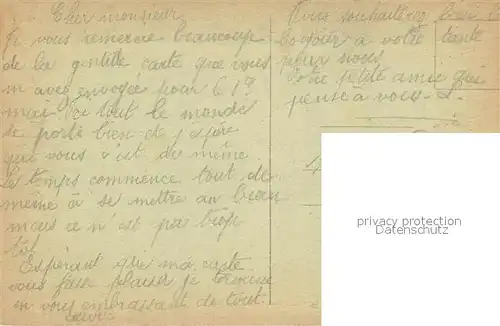 Cher monsieur
Je vous remercie beaucoup
de la gentille carte que vous
m avez envoyée pour le 1er
mai. Ici tout le monde
se porte bien et j espère
qui vous s'est de même
Le temps commence tout de
même à se mettre au beau
mais ce n'est pas trop
tôt
Espérant que ma carte
vous fase plaisir je termine
en vous embrassant de tout
cœur
Vous souhaiterez bien le
bonjour à votre tante
pour nous.
Votre petite amie qui
pense à vous
privacy protection
Datenschutz